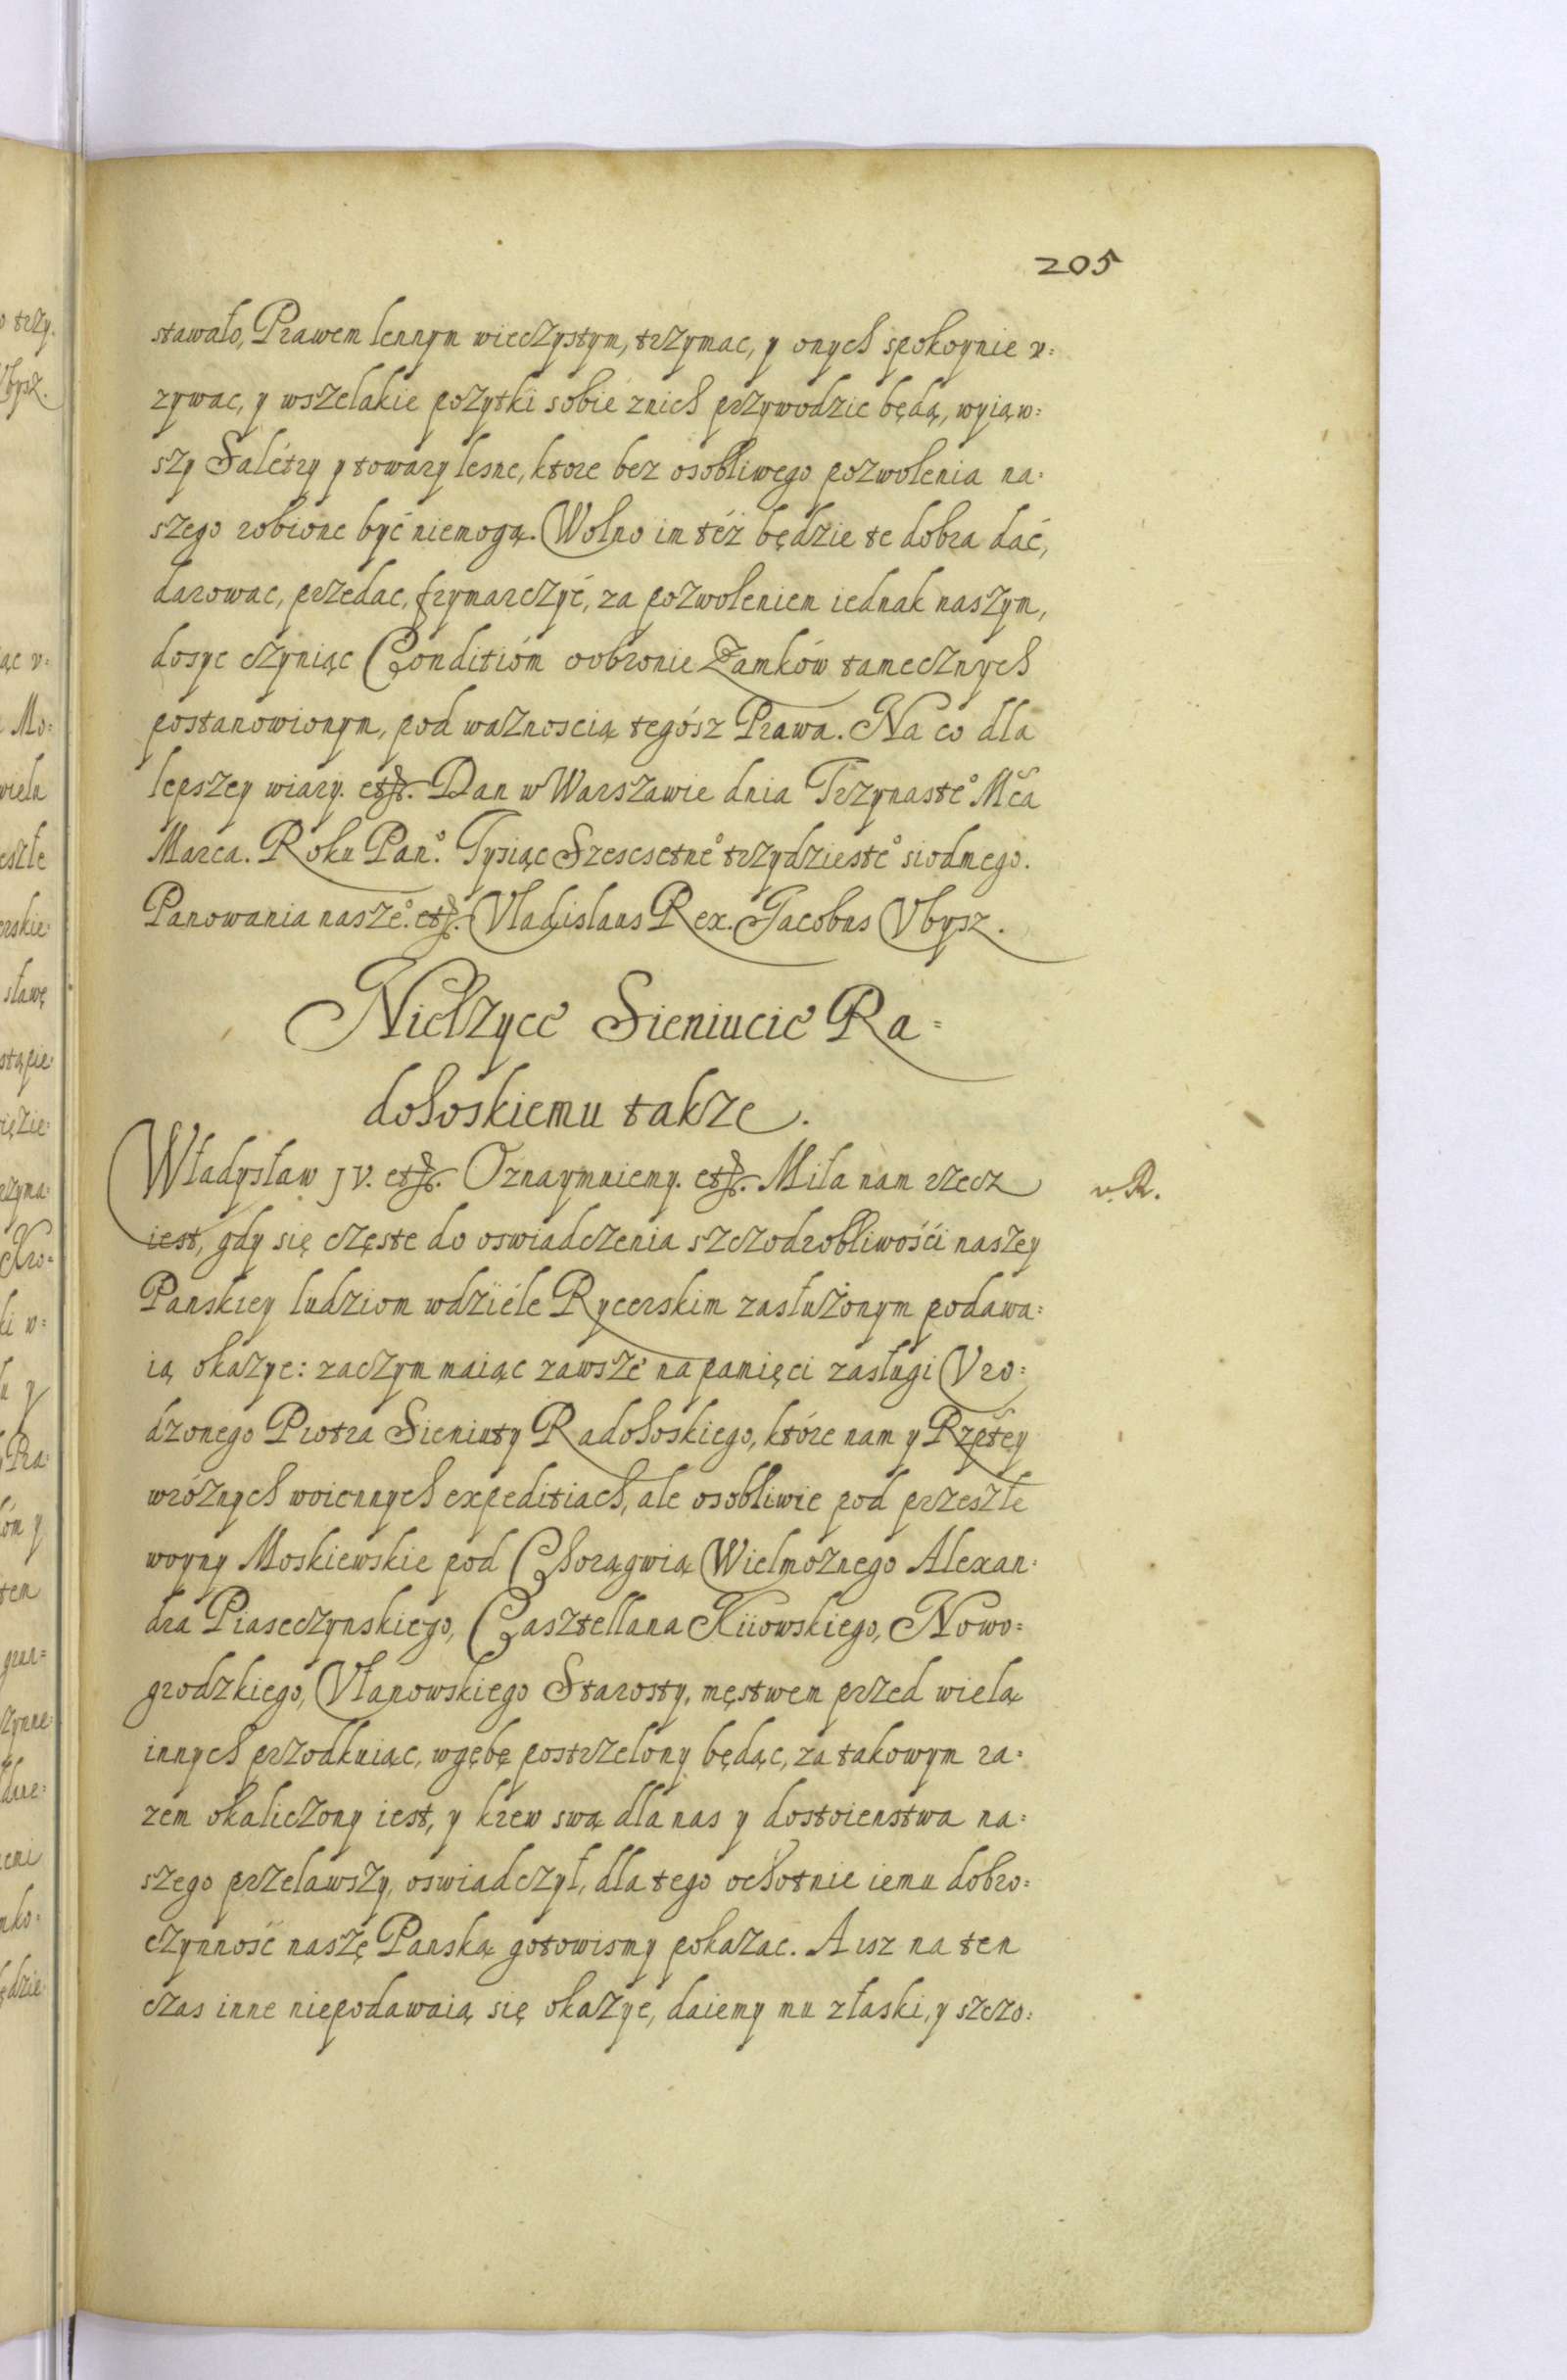 205
stawało, Prawem lennym wieczystym, trzymac, y onych spokoynie v=
zywac, y wszelakie pozytki sobie znich przywodzic będą, wyiąw=
szy Salétry y towary lesne, ktore bez osobliwego pozwolenia na=
szego robione być niemogą. Wolno im też będzie te dobra dać,
darowac, przedac, frymarczyć, za pozwoleniem iednak naszym,
dosyc czyniąc Conditióm oobronie Zamków tamecznych
postanowionym, pod waznoscią tegósz Prawa. Na co dla
lepszey wiary. etc. Dan w Warszawie dnia Trzynaste° Mca
Marca. Roku Pan°. Tysiąc Szescsetne° trzydzieste° siodmego.
Panowania nasze°. etc. Vladislaus Rex. Jacobus Vbysz.
Nielzyce Sieniucie Ra=
dohoskiemu takze.
Władysław jv. etc. Oznaymuiemy. etc. Miła nam rzecz
v. R.
iest, gdy się częste do oswiadczenia szczodrobliwośći naszey
Panskiey ludziom wdziéle Rycerskim zasłużonym podawa=
ią okazye: zaczym maiąc zawsze na pamięci zasługi Vro=
dzonego Piotra Sieniuty Radohoskiego, które nam y Rzptey
wróżnych woiennych expeditiach, ale osobliwie pod przeszłe
woyny Moskiewskie pod Chorągwią Wielmoznego Alexan=
dra Piaseczynskiego, Casztellana Kiiowskiego, Nowo=
grodzkiego, Vłanowskiego Starosty, męstwem przed wielą
innych przodkuiąc, wgębę postrzelony będąc, za takowym ra=
zem okaliczony iest, y krew swą dla nas y dostoienstwa na=
szego przelawszy, oswiadczył, dla tego ochotnie iemu dobro=
czynność naszę Panską gotowismy pokazac. A isz na ten
czas inne niepodawaią się okazye, daiemy mu złaski, y szczo=